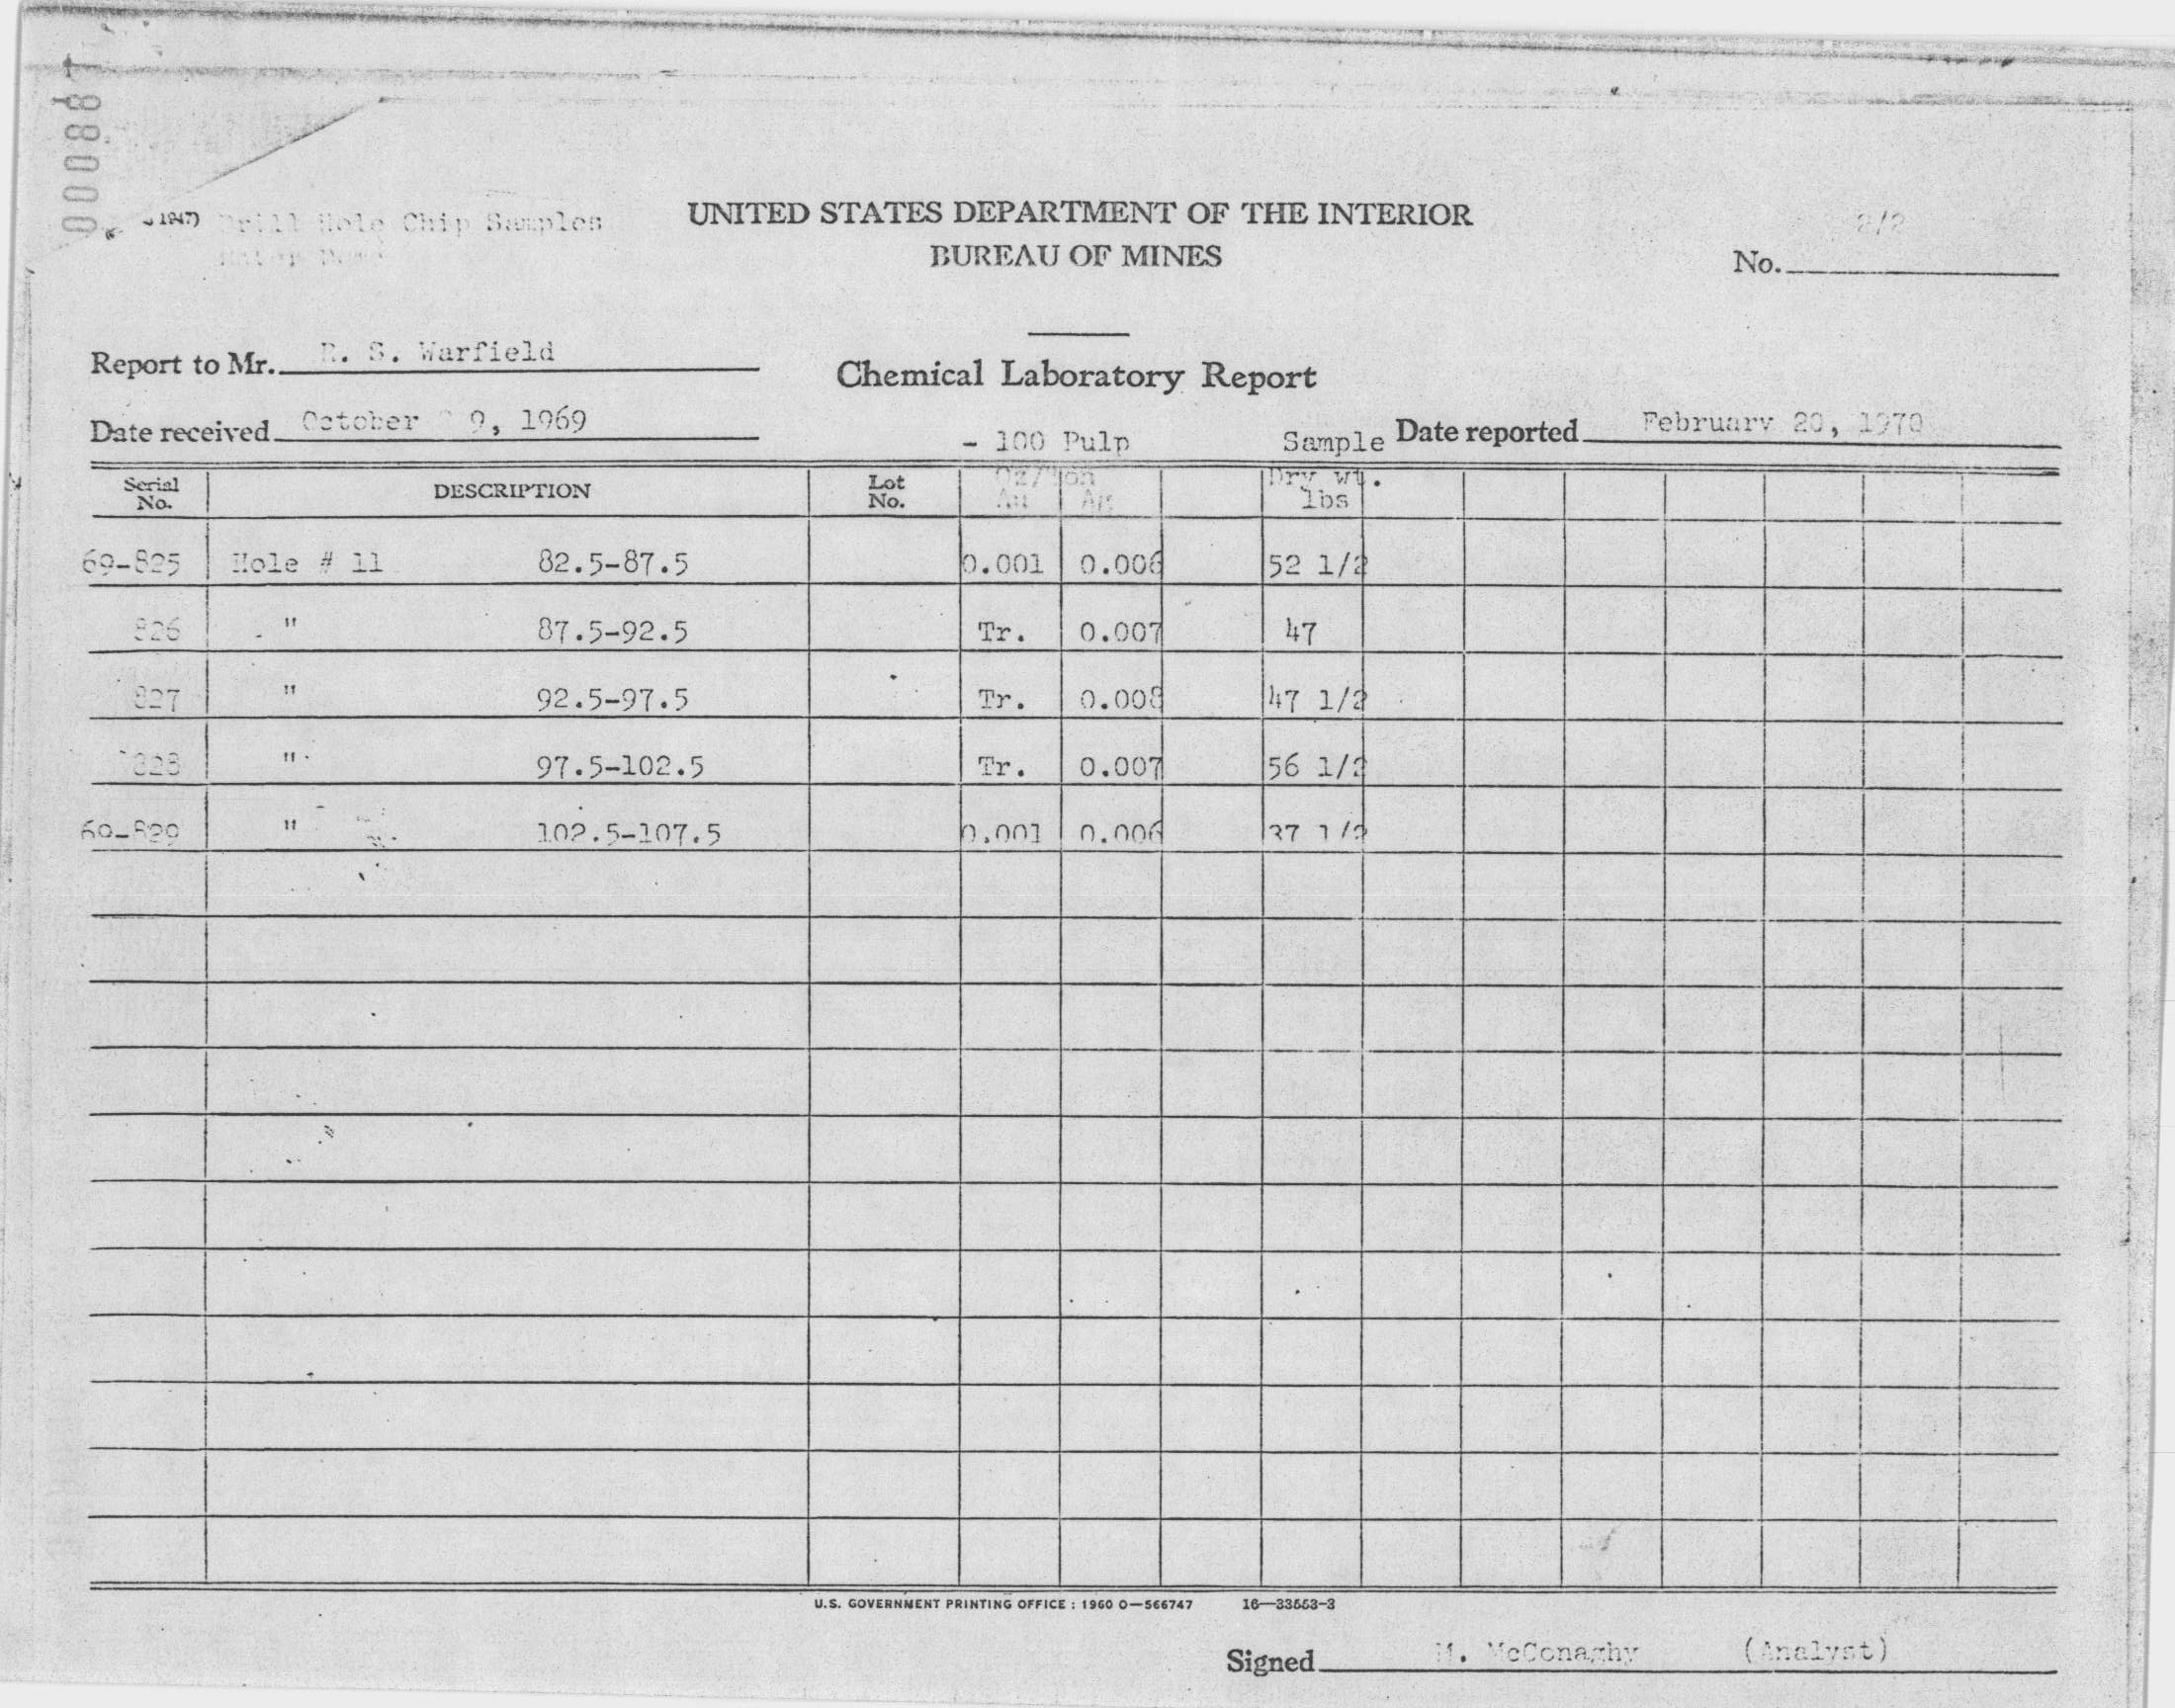 000887
1947) Drill Hole Chip Samples
UNITED STATES DEPARTMENT OF THE INTERIOR
BUREAU OF MINES
2/2
No.
Report to Mr. R. S. Warfield
Chemical Laboratory Report
Date received October 9, 1969
Date reported February 20, 1970
- 100 Pulp Sample
Serial No. DESCRIPTION Lot No. Oz/Ton Au Ag Dry wt. lbs
69-825 Hole # 11 82.5-87.5 0.001 0.006 52 1/2
826 " 87.5-92.5 Tr. 0.007 47
827 " 92.5-97.5 Tr. 0.008 47 1/2
828 " 97.5-102.5 Tr. 0.007 56 1/2
69-829 " 102.5-107.5 0.001 0.006 37 1/2
U.S. GOVERNMENT PRINTING OFFICE : 1960 O—566747 16—33553-3
Signed M. McConaghy (Analyst)